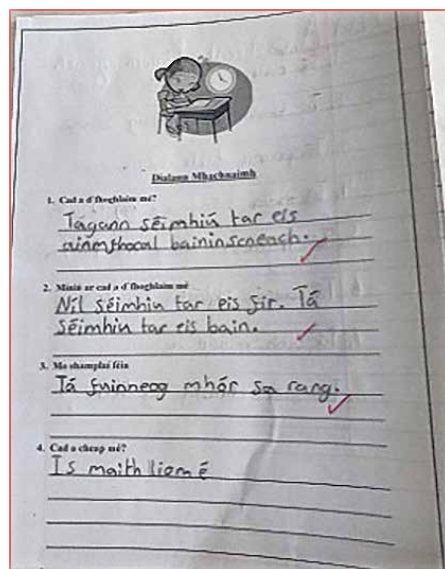 Dialann Mhachnaimh
1. Cad a d'fhoghlaim mé?
Tagann séimhiú tar eis
ainmfhocal baininscneach.
2. Míniú ar cad a d'fhoghlaim mé
Níl séimhiu tar eis fir. Tá
séimhiu tar eis bain.
3. Mo shamplaí féin
Tá fuinneog mhór sa rang.
4. Cad a cheap mé?
Is maith liom é